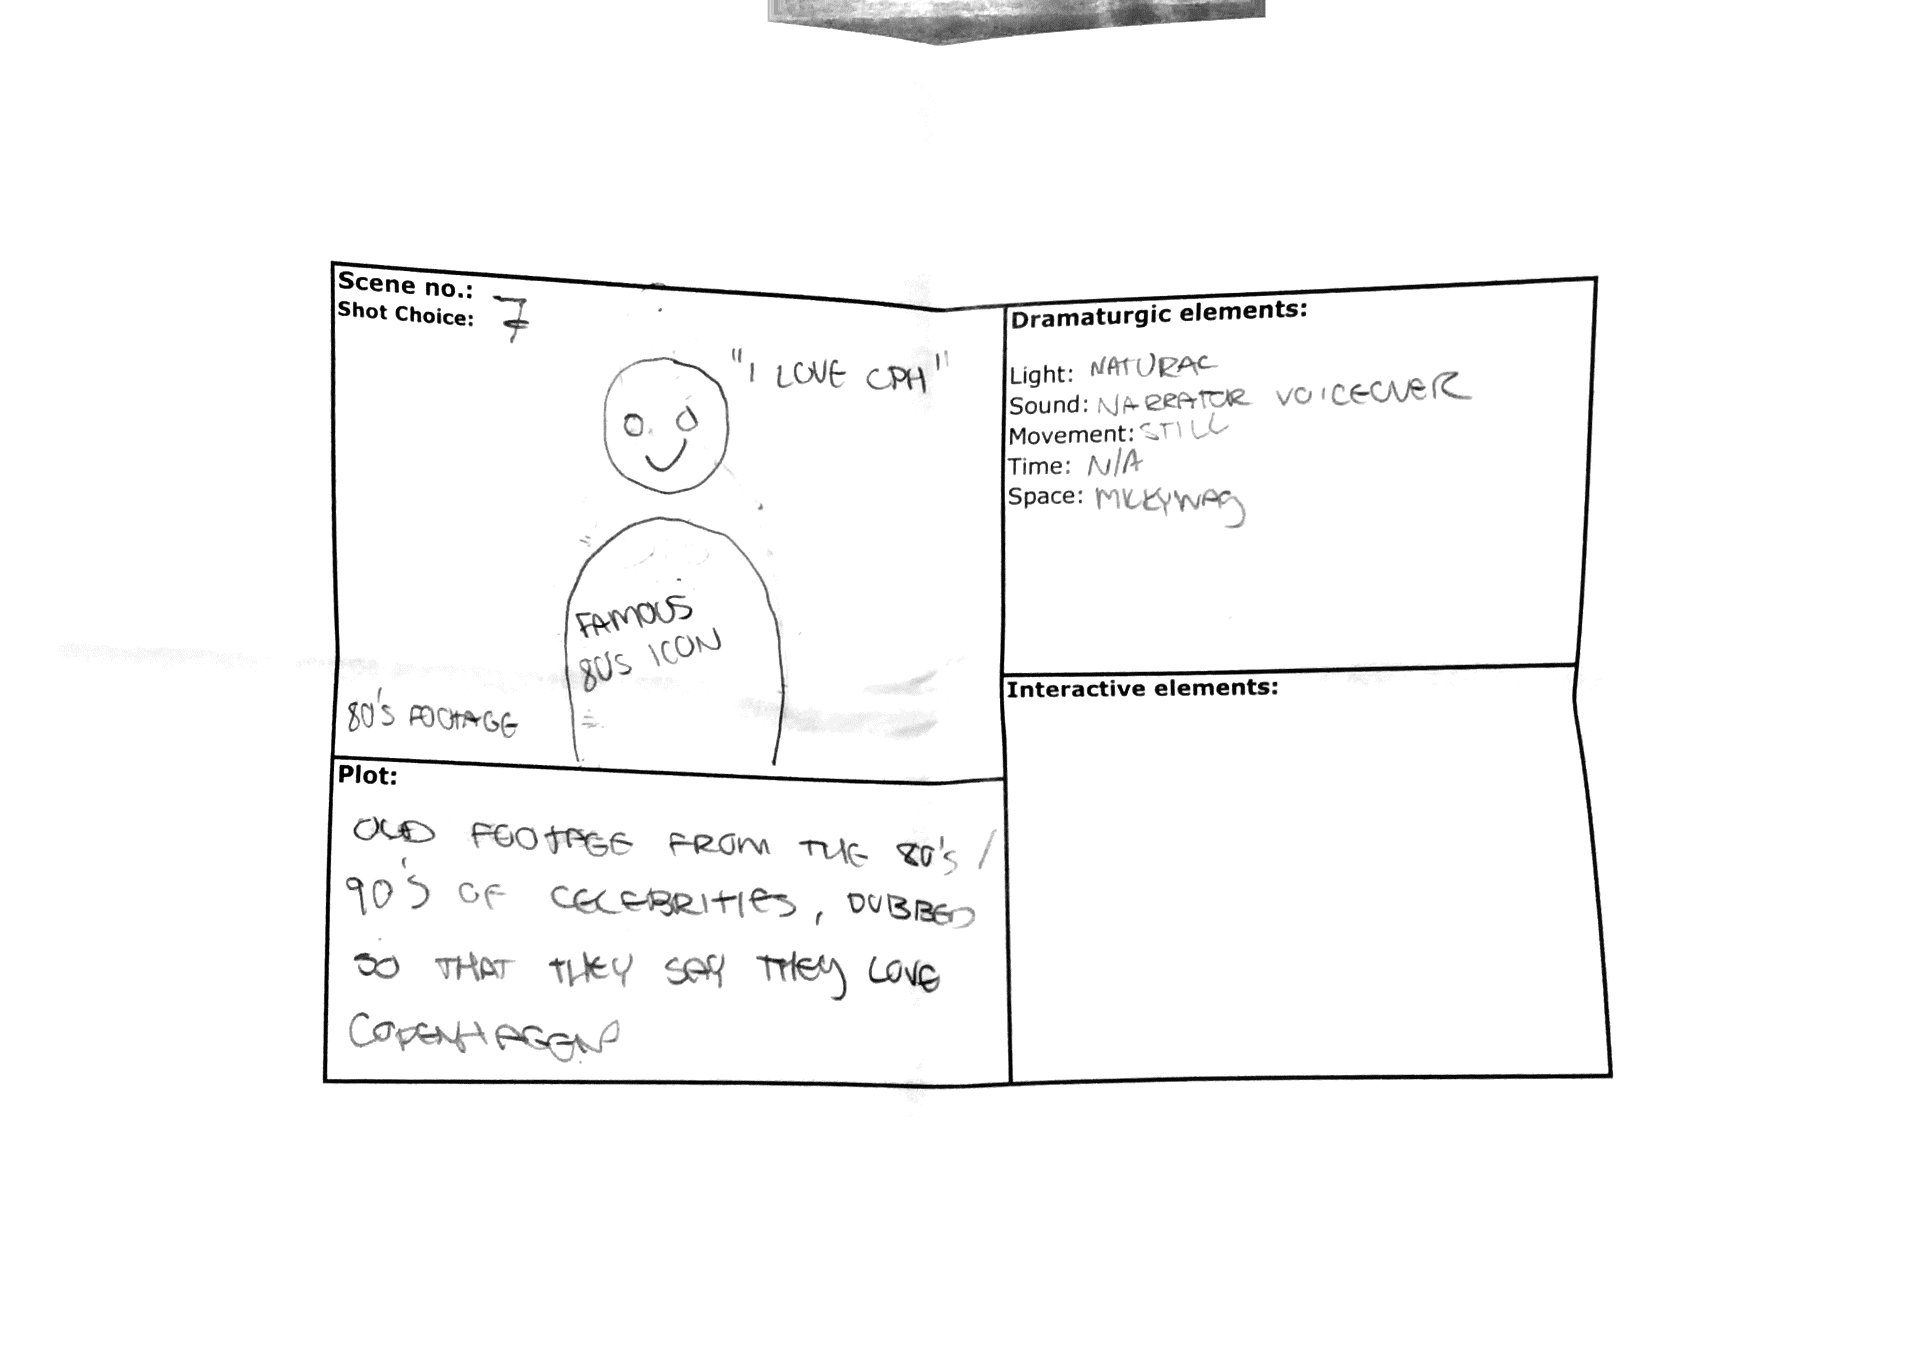 Scene no.:
Shot Choice: 7
"I LOVE CPH"
FAMOUS
80'S ICON
80'S FOOTAGE
Plot:
OLD FOOTAGE FROM THE 80's /
90'S OF CELEBRITIES, DUBBED
SO THAT THEY SAY THEY LOVE
COPENHAGEN
Dramaturgic elements:
Light: NATURAL
Sound: NARRATOR VOICEOVER
Movement: STILL
Time: N/A
Space: MILKYWAY
Interactive elements: